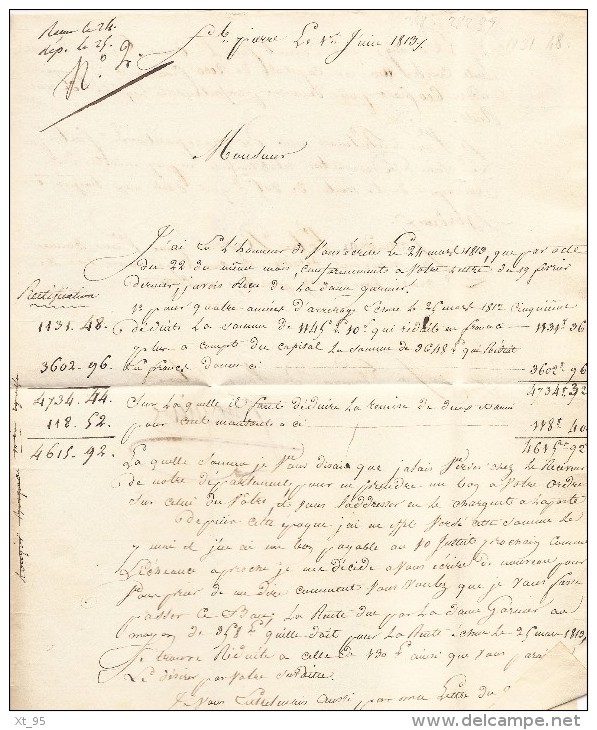 Recu le 24.
dép. le 25.
N.º 2.
St. pierre Le 1er Juin 1813,
1131-48.
Monsieur
J'ai Eu L'honneur de Vous Ecrire Le 24 mars 1813, que par acte
du 22 du même mois, conformément a Votre Lettre du 19 février
dernier, javois de La dame garnier.
Rectification
1º pour quatre années d'arrerages Echues Le 25 mars 1812 Cinquième
1131-48. déduits La somme de 1145# 10s qui réduits en francs 1131f 36
plus a compte du capital La somme de 3648# qui Reduit
3602-96. En francs donne ci 3602f 96
4734.44. Sur Laquelle il faut déduire La remise de deux et demi 4734f 32
118.52. pour cent montant a ci 118f 40
4615.92. 4615f 92
La quelle Somme je Vous disais que jalais Verser chez Le Receveur
de notre département pour en prendre un bon a Votre ordre
Sur Celui du Votre et de Vous L'addresser en le chargeant a la poste
depuis cette époque j'ai en effet Versé cette Somme Le
7 mai et j'ai eu un bon payable au 10 Juillet prochain comme
L'échéance aproche je me décide a Vous écrire de nouveau pour
Vous prier de me dire comment Vous Voulez que je Vous fasse
passer ce Bon, La Rente due par La dame Garnier au
moyen de qu'elle doit pour La Rente Echue Le 25 mars 1813,
Se trouve Réduite a celle de 130# ainsi que Vous
Le désirer par Votre
Je Vous aussi par ma Lettre du
Xt_95
www.delcampe.net